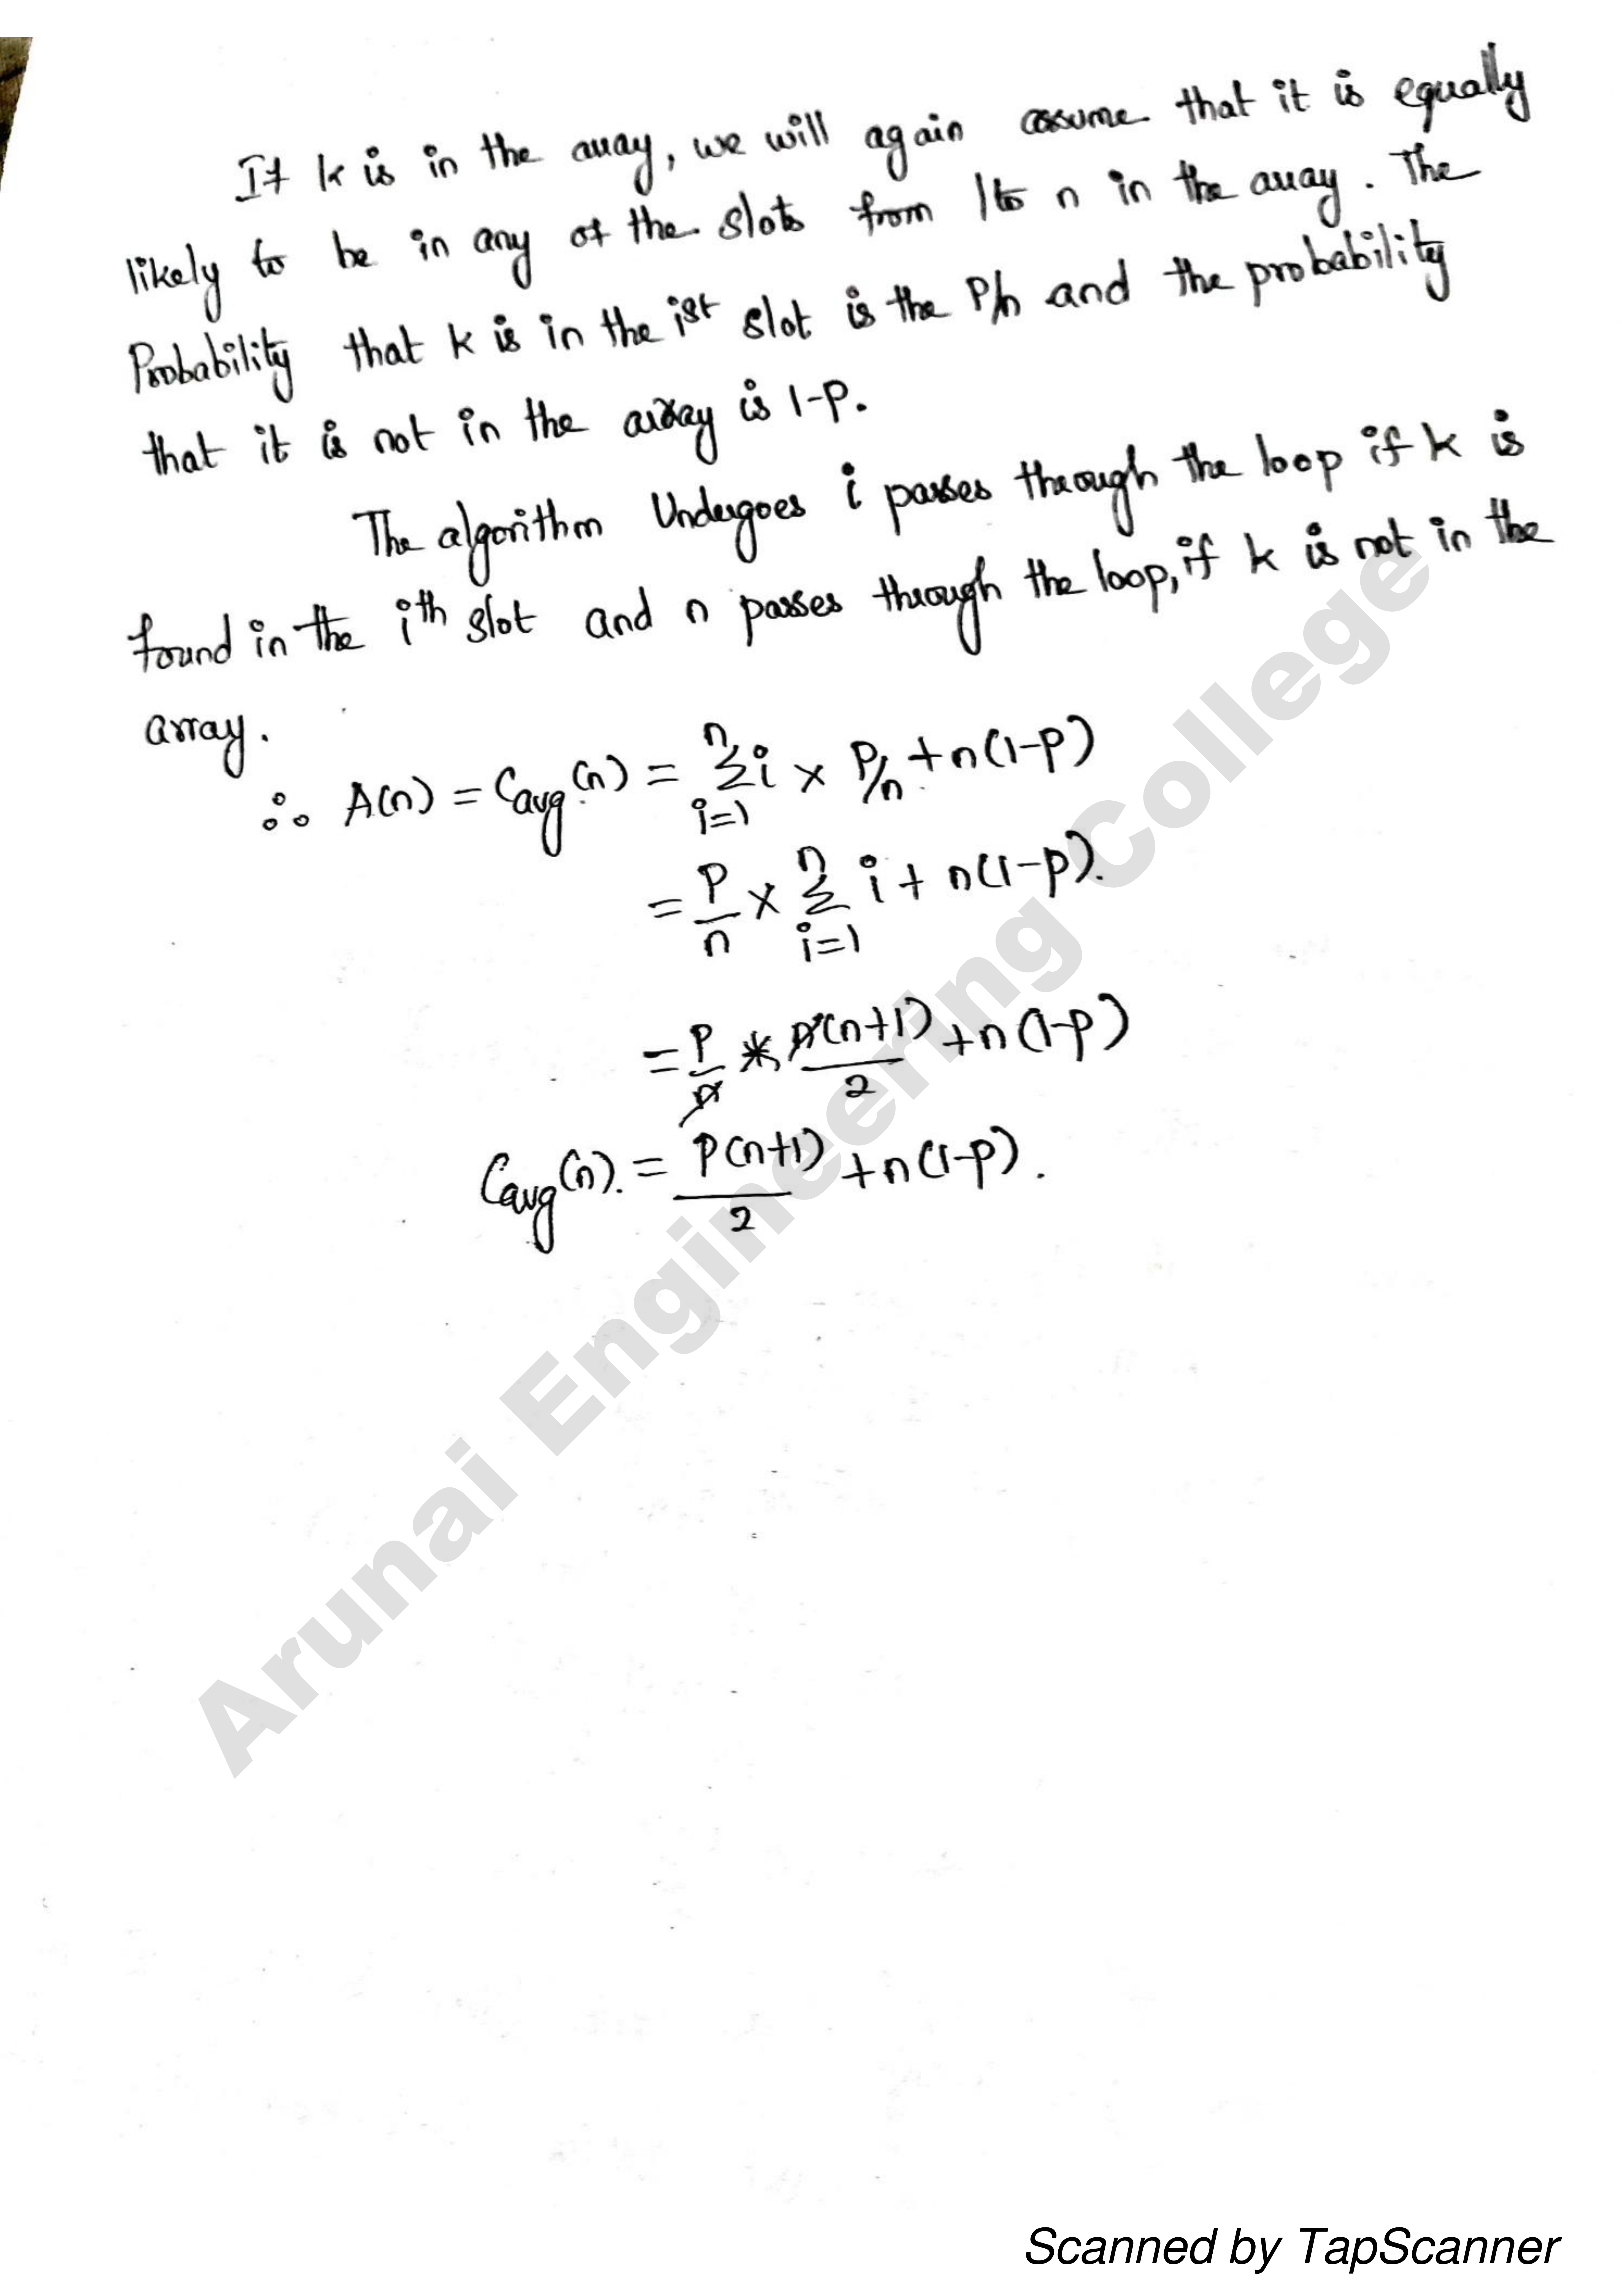 If k is in the array, we will again assume that it is equally
likely to be in any of the slots from 1 to n in the array. The
Probability that k is in the ist slot is the P/n and the probability
that it is not in the array is 1-p.
The algorithm Undergoes i passes through the loop if k is
found in the ith slot and n passes through the loop, if k is not in the
array.
∴ A(n) = Cavg(n) = n Σ i=1 i × P/n + n(1-p)
= P/n × n Σ i=1 i + n(1-p).
= P/n * n(n+1)/2 + n(1-p)
Cavg(n). = P(n+1)/2 + n(1-p).
Arunai Engineering College
Scanned by TapScanner